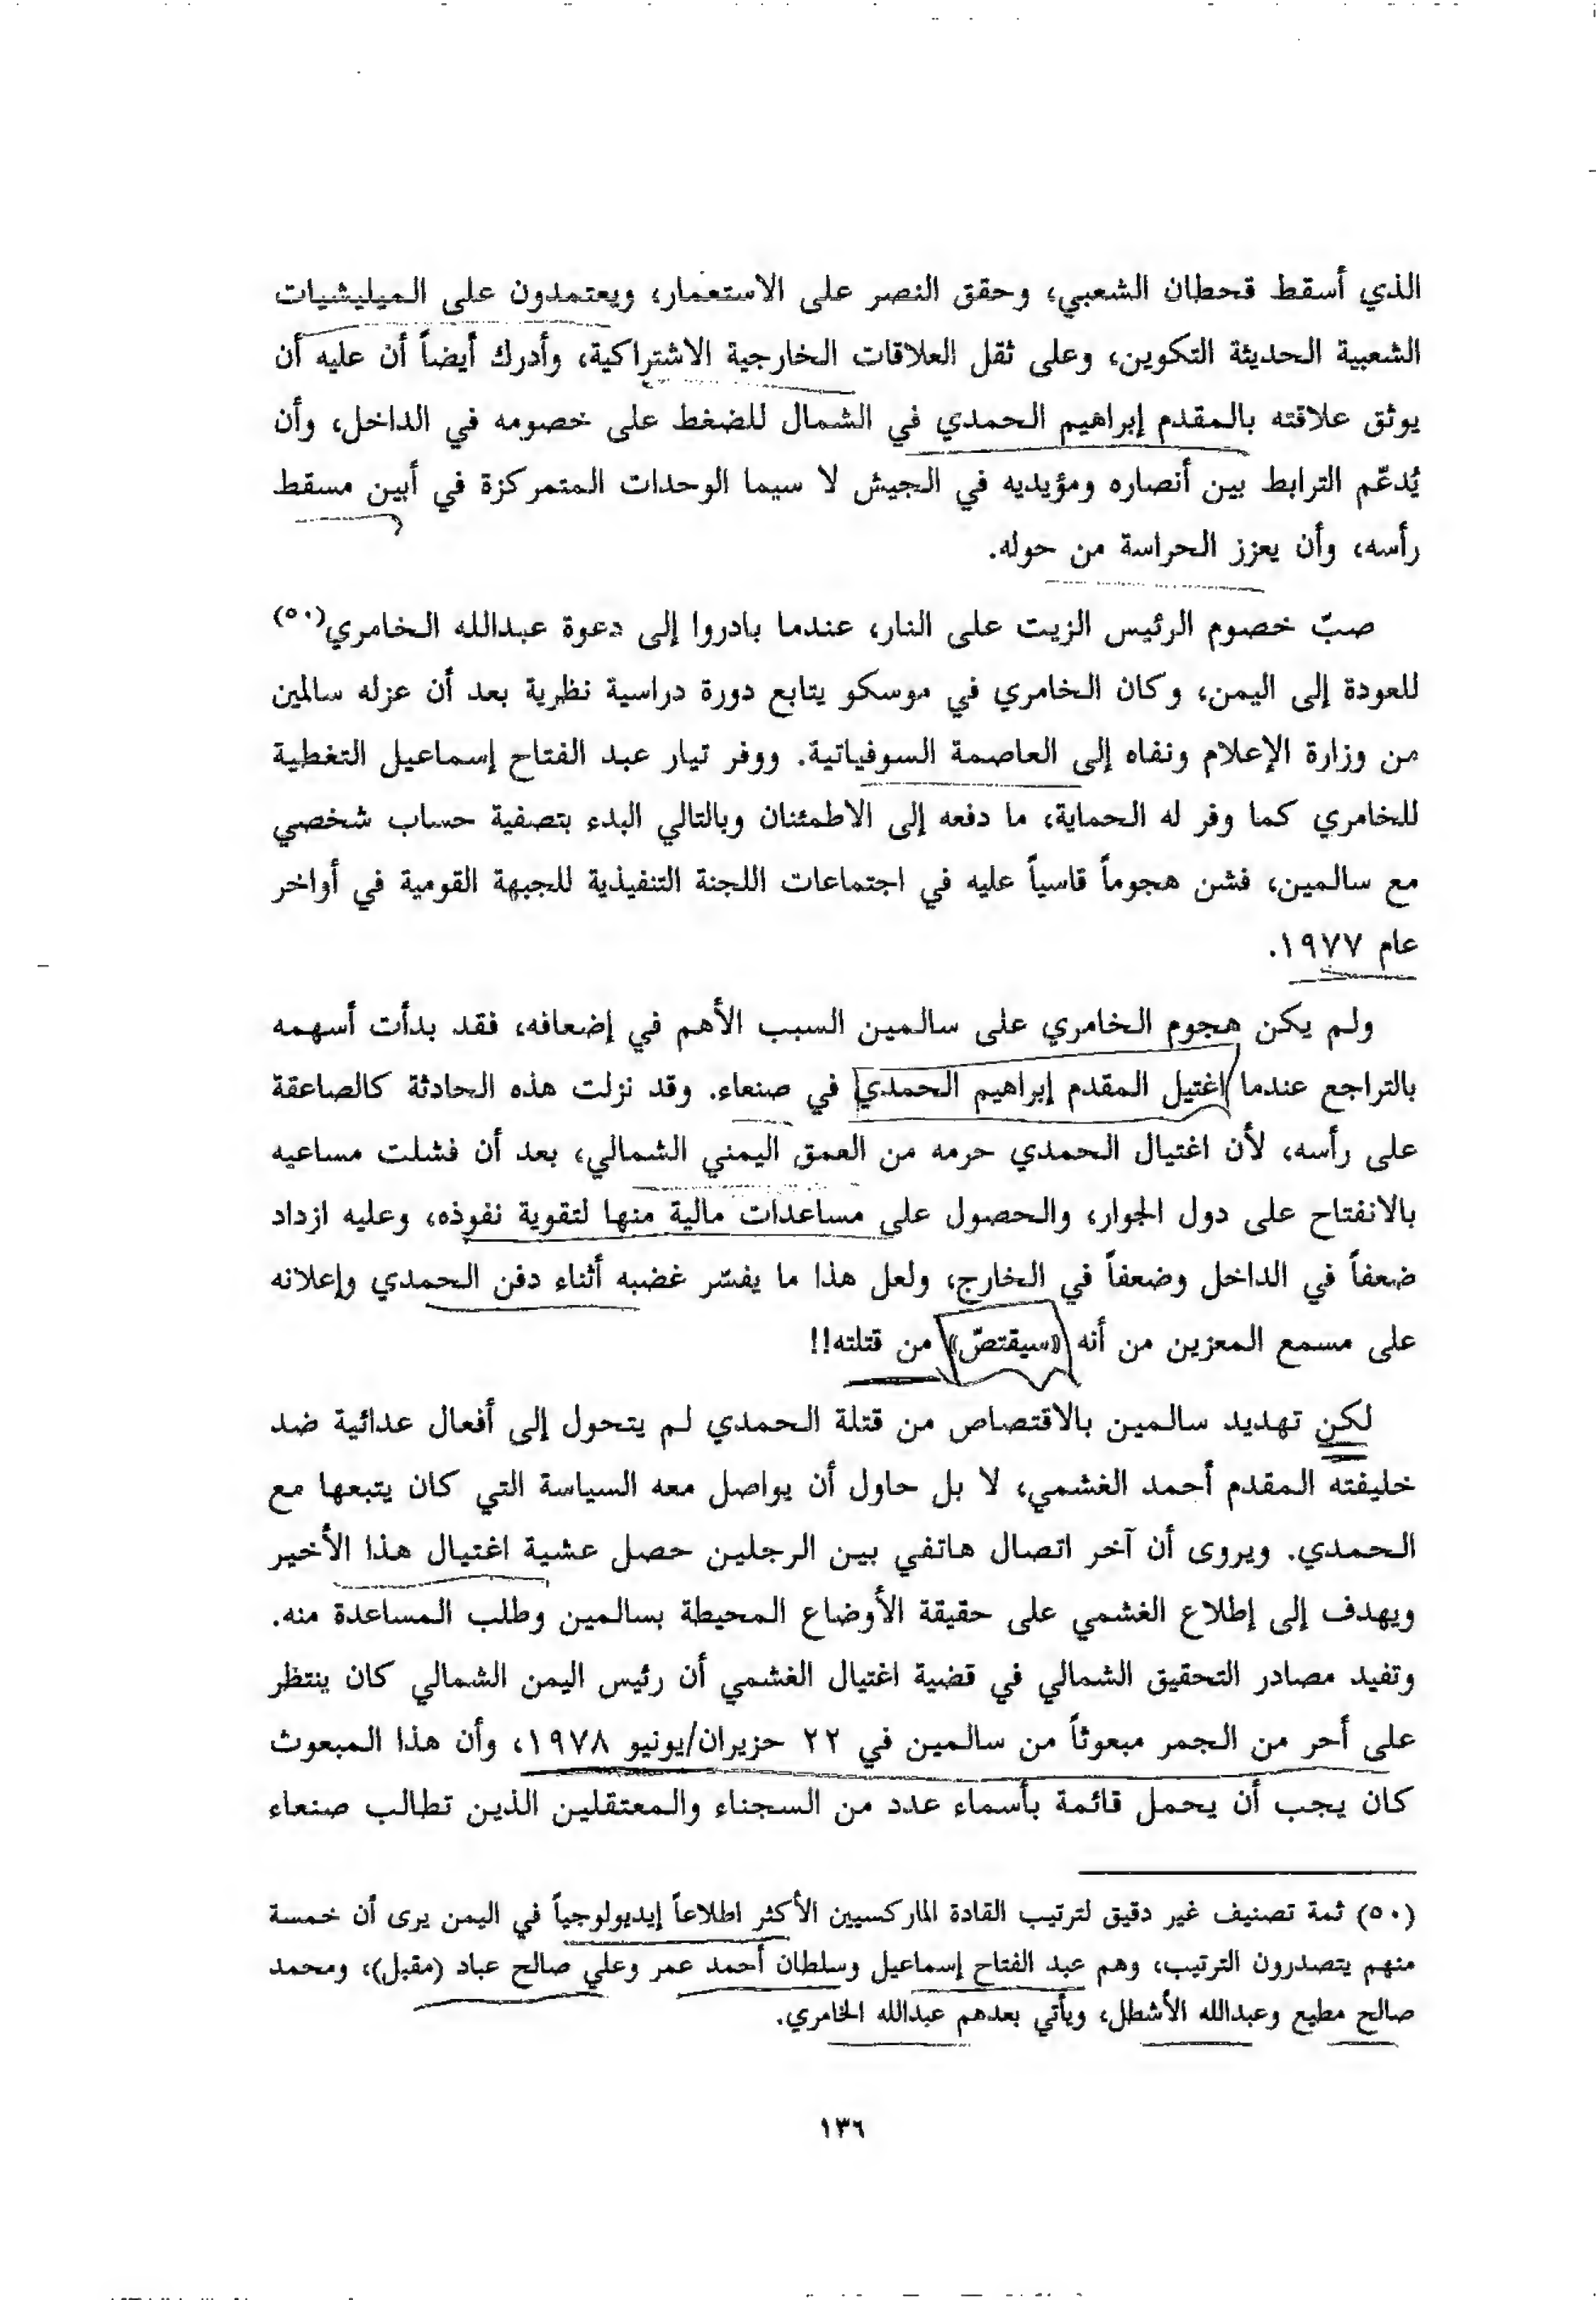 الذي أسقط قحطان الشعبي، وحقق النصر على الاستعمار، ويعتمدون على الميليشيات
الشعبية الحديثة التكوين، وعلى ثقل العلاقات الخارجية الاشتراكية، وأدرك أيضاً أن عليه أن
يوثق علاقته بالمقدم إبراهيم الحمدي في الشمال للضغط على خصومه في الداخل، وأن
يُدعّم الترابط بين أنصاره ومؤيديه في الجيش لا سيما الوحدات المتمركزة في أبين مسقط
رأسه، وأن يعزز الحراسة من حوله.
صبّ خصوم الرئيس الزيت على النار، عندما بادروا إلى دعوة عبدالله الخامري(٥٠)
للعودة إلى اليمن، وكان الخامري في موسكو يتابع دورة دراسية نظرية بعد أن عزله سالمين
من وزارة الإعلام ونفاه إلى العاصمة السوفياتية. ووفر تيار عبد الفتاح إسماعيل التغطية
للخامري كما وفر له الحماية، ما دفعه إلى الاطمئنان وبالتالي البدء بتصفية حساب شخصي
مع سالمين، فشن هجوماً قاسياً عليه في اجتماعات اللجنة التنفيذية للجبهة القومية في أواخر
عام ١٩٧٧.
ولم يكن هجوم الخامري على سالمين السبب الأهم في إضعافه، فقد بدأت أسهمه
بالتراجع عندما اغتيل المقدم إبراهيم الحمدي في صنعاء. وقد نزلت هذه الحادثة كالصاعقة
على رأسه، لأن اغتيال الحمدي حرمه من العمق اليمني الشمالي، بعد أن فشلت مساعيه
بالانفتاح على دول الجوار، والحصول على مساعدات مالية منها لتقوية نفوذه، وعليه ازداد
ضعفاً في الداخل وضعفاً في الخارج، ولعل هذا ما يفسّر غضبه أثناء دفن الحمدي وإعلانه
على مسمع المعزين من أنه «سيقتصّ» من قتلته!!
لكن تهديد سالمين بالاقتصاص من قتلة الحمدي لم يتحول إلى أفعال عدائية ضد
خليفته المقدم أحمد الغشمي، لا بل حاول أن يواصل معه السياسة التي كان يتبعها مع
الحمدي. ويروى أن آخر اتصال هاتفي بين الرجلين حصل عشية اغتيال هذا الأخير
ويهدف إلى إطلاع الغشمي على حقيقة الأوضاع المحيطة بسالمين وطلب المساعدة منه.
وتفيد مصادر التحقيق الشمالي في قضية اغتيال الغشمي أن رئيس اليمن الشمالي كان ينتظر
على أحر من الجمر مبعوثاً من سالمين في ٢٢ حزيران/يونيو ١٩٧٨، وأن هذا المبعوث
كان يجب أن يحمل قائمة بأسماء عدد من السجناء والمعتقلين الذين تطالب صنعاء
(٥٠) ثمة تصنيف غير دقيق لترتيب القادة الماركسيين الأكثر اطلاعاً إيديولوجياً في اليمن يرى أن خمسة
منهم يتصدرون الترتيب، وهم عبد الفتاح إسماعيل وسلطان أحمد عمر وعلي صالح عباد (مقبل)، ومحمد
صالح مطيع وعبدالله الأشطل، ويأتي بعدهم عبدالله الخامري.
١٣٦